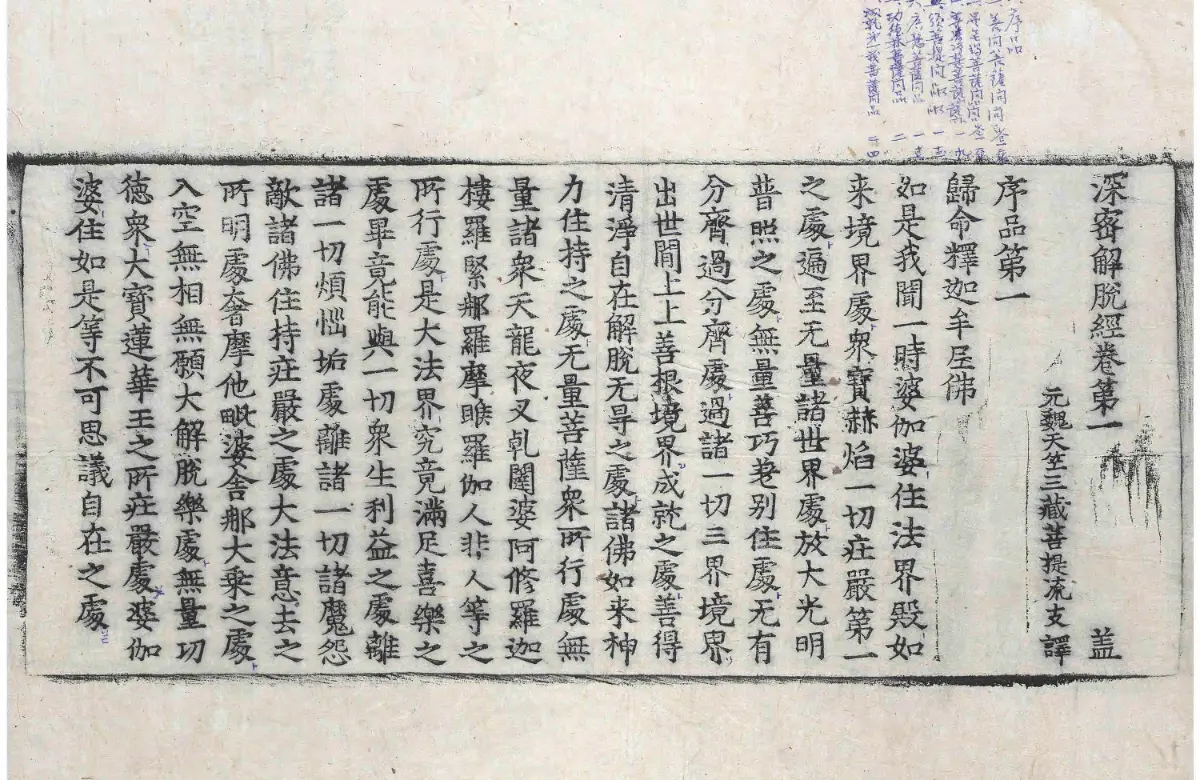 序品
善問菩薩問
深密解脫經卷第一 盖
元魏天竺三藏菩提流支 譯
序品第一
歸命釋迦牟尼佛
如是我聞一時婆伽婆住法界殿如
来境界處衆寶赫焰一切庄嚴第一
之處遍至无量諸世界處放大光明
普照之處無量善巧差別住處无有
分齊過分齊處過諸一切三界境界
出世間上上善根境界成就之處善得
清淨自在解脫无导之處諸佛如来神
力住持之處无量菩薩衆所行處無
量諸衆天龍夜叉乹闥婆阿修羅迦
樓羅緊那羅摩睺羅伽人非人等之
所行處是大法界究竟滿足喜樂之
處畢竟能與一切衆生利益之處離
諸一切煩惱垢處離諸一切諸魔怨
敵諸佛住持庄嚴之處大法意去之
所明處奢摩他毗婆舍那大乗之處
入空無相無願大解脫樂處無量功
德衆大寶蓮華王之所庄嚴處婆伽
婆住如是等不可思議自在之處